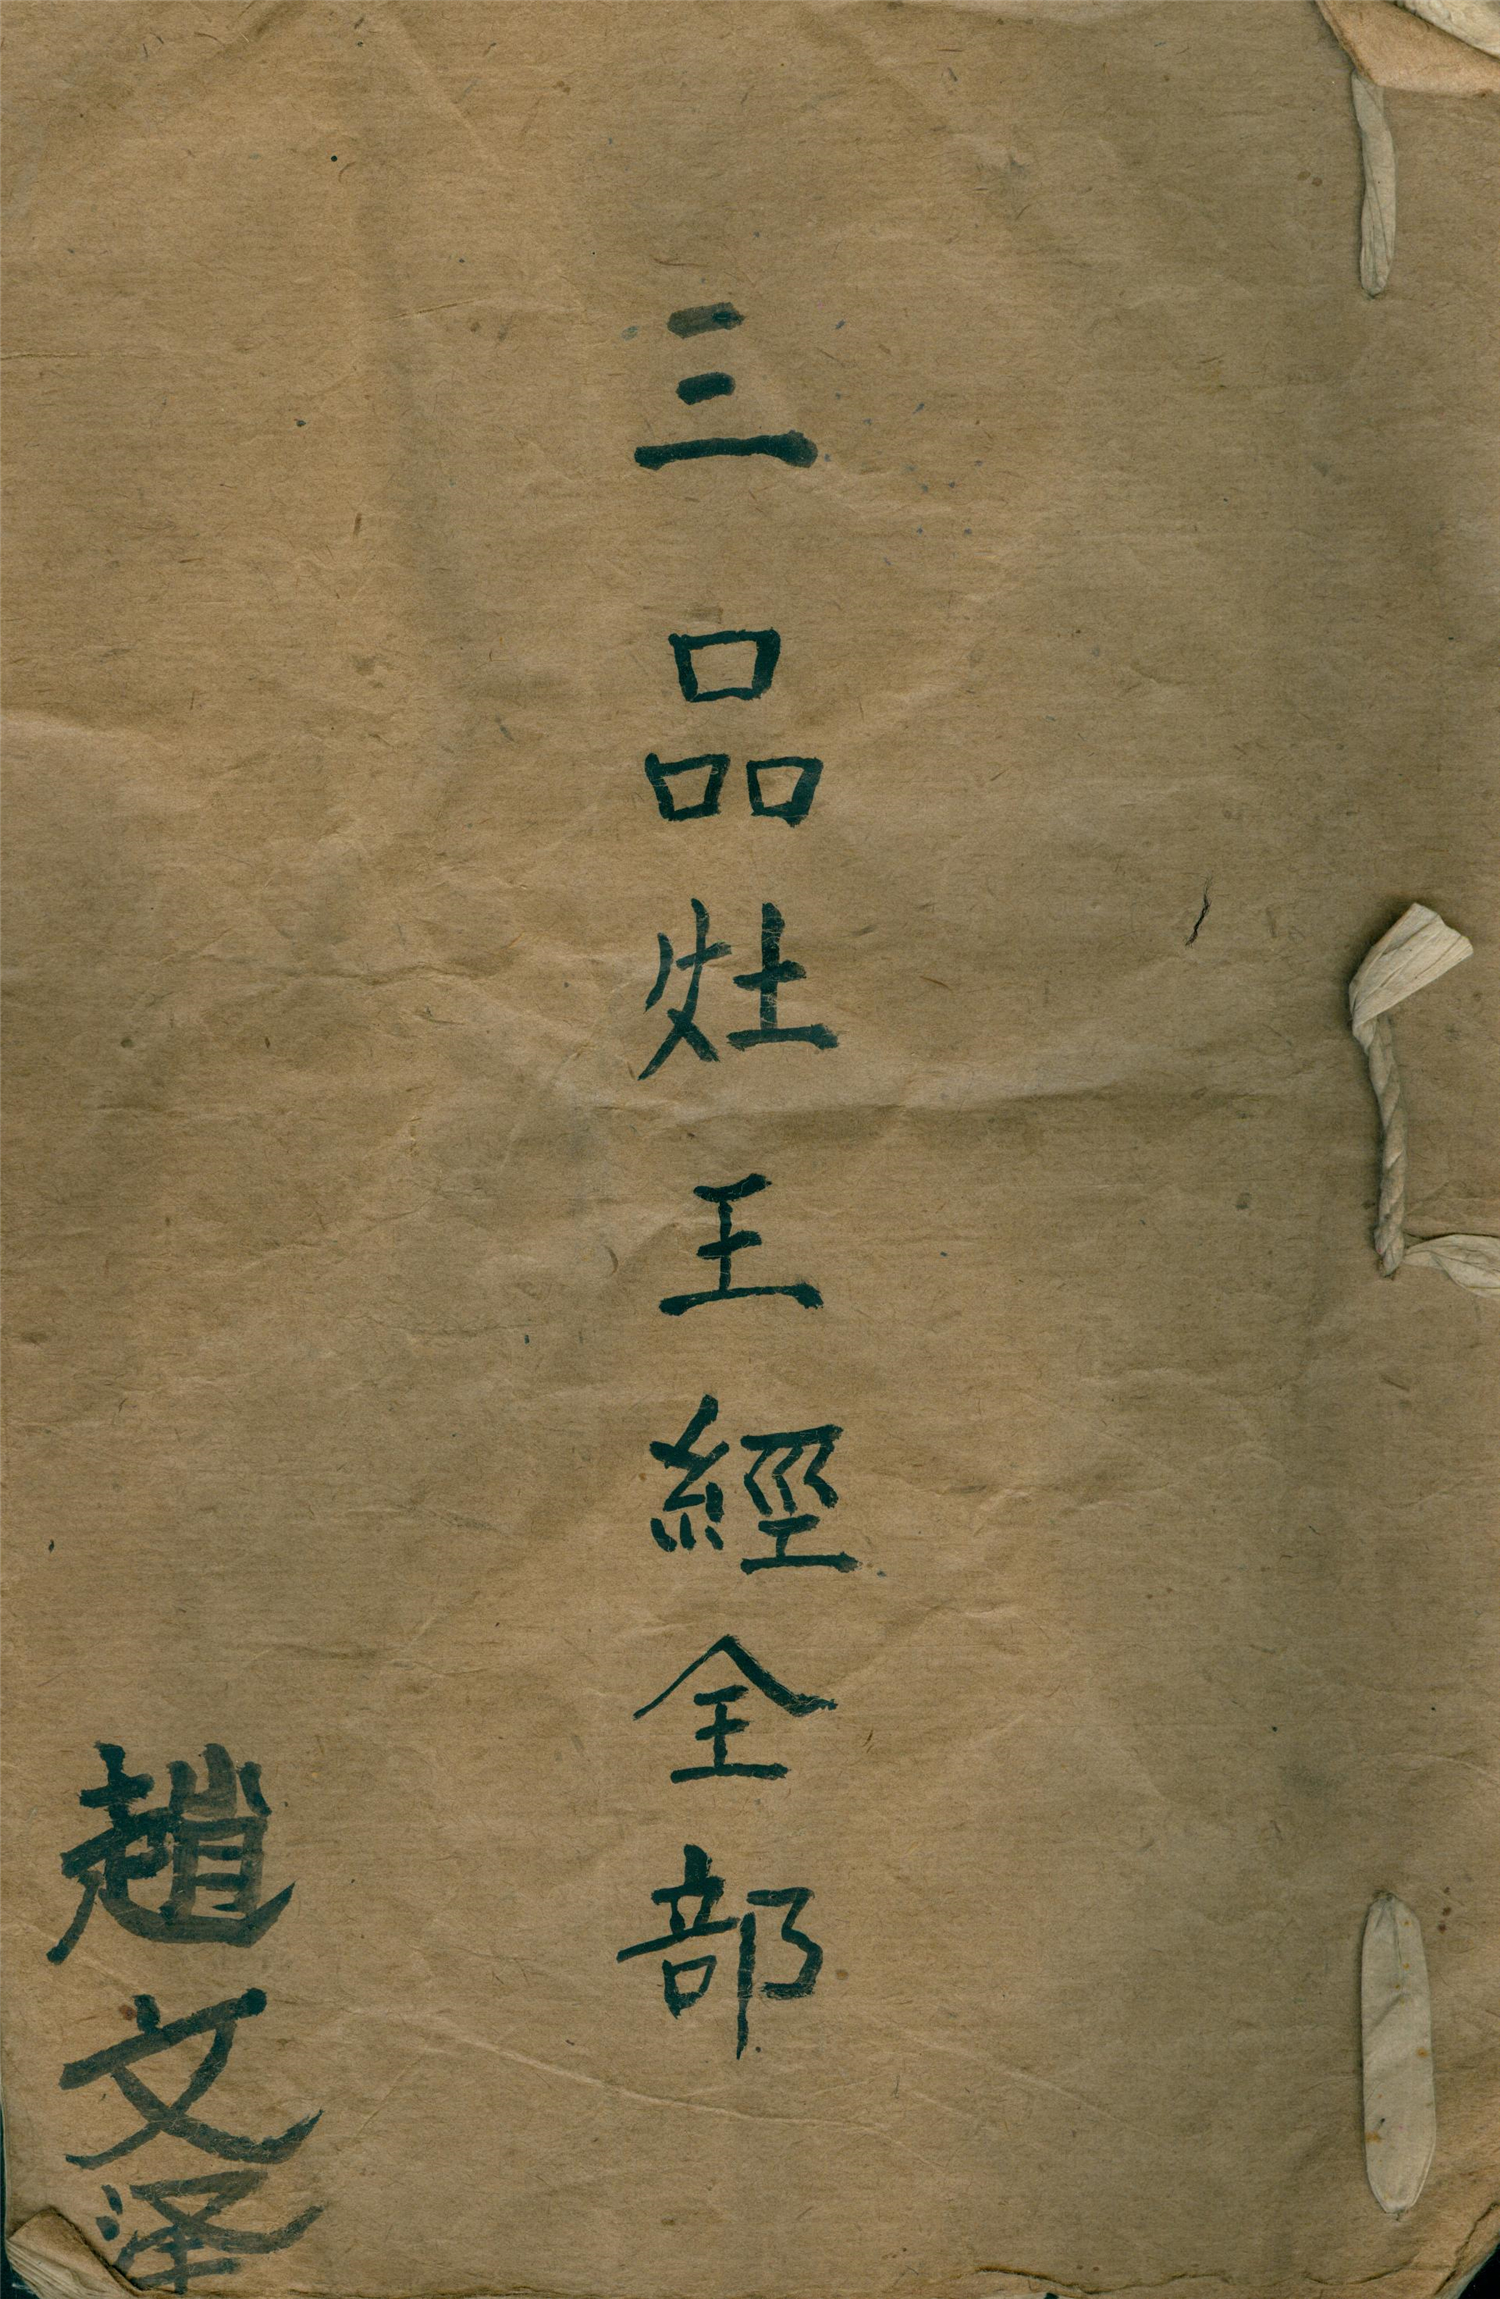 三品灶王經全部
趙文泽